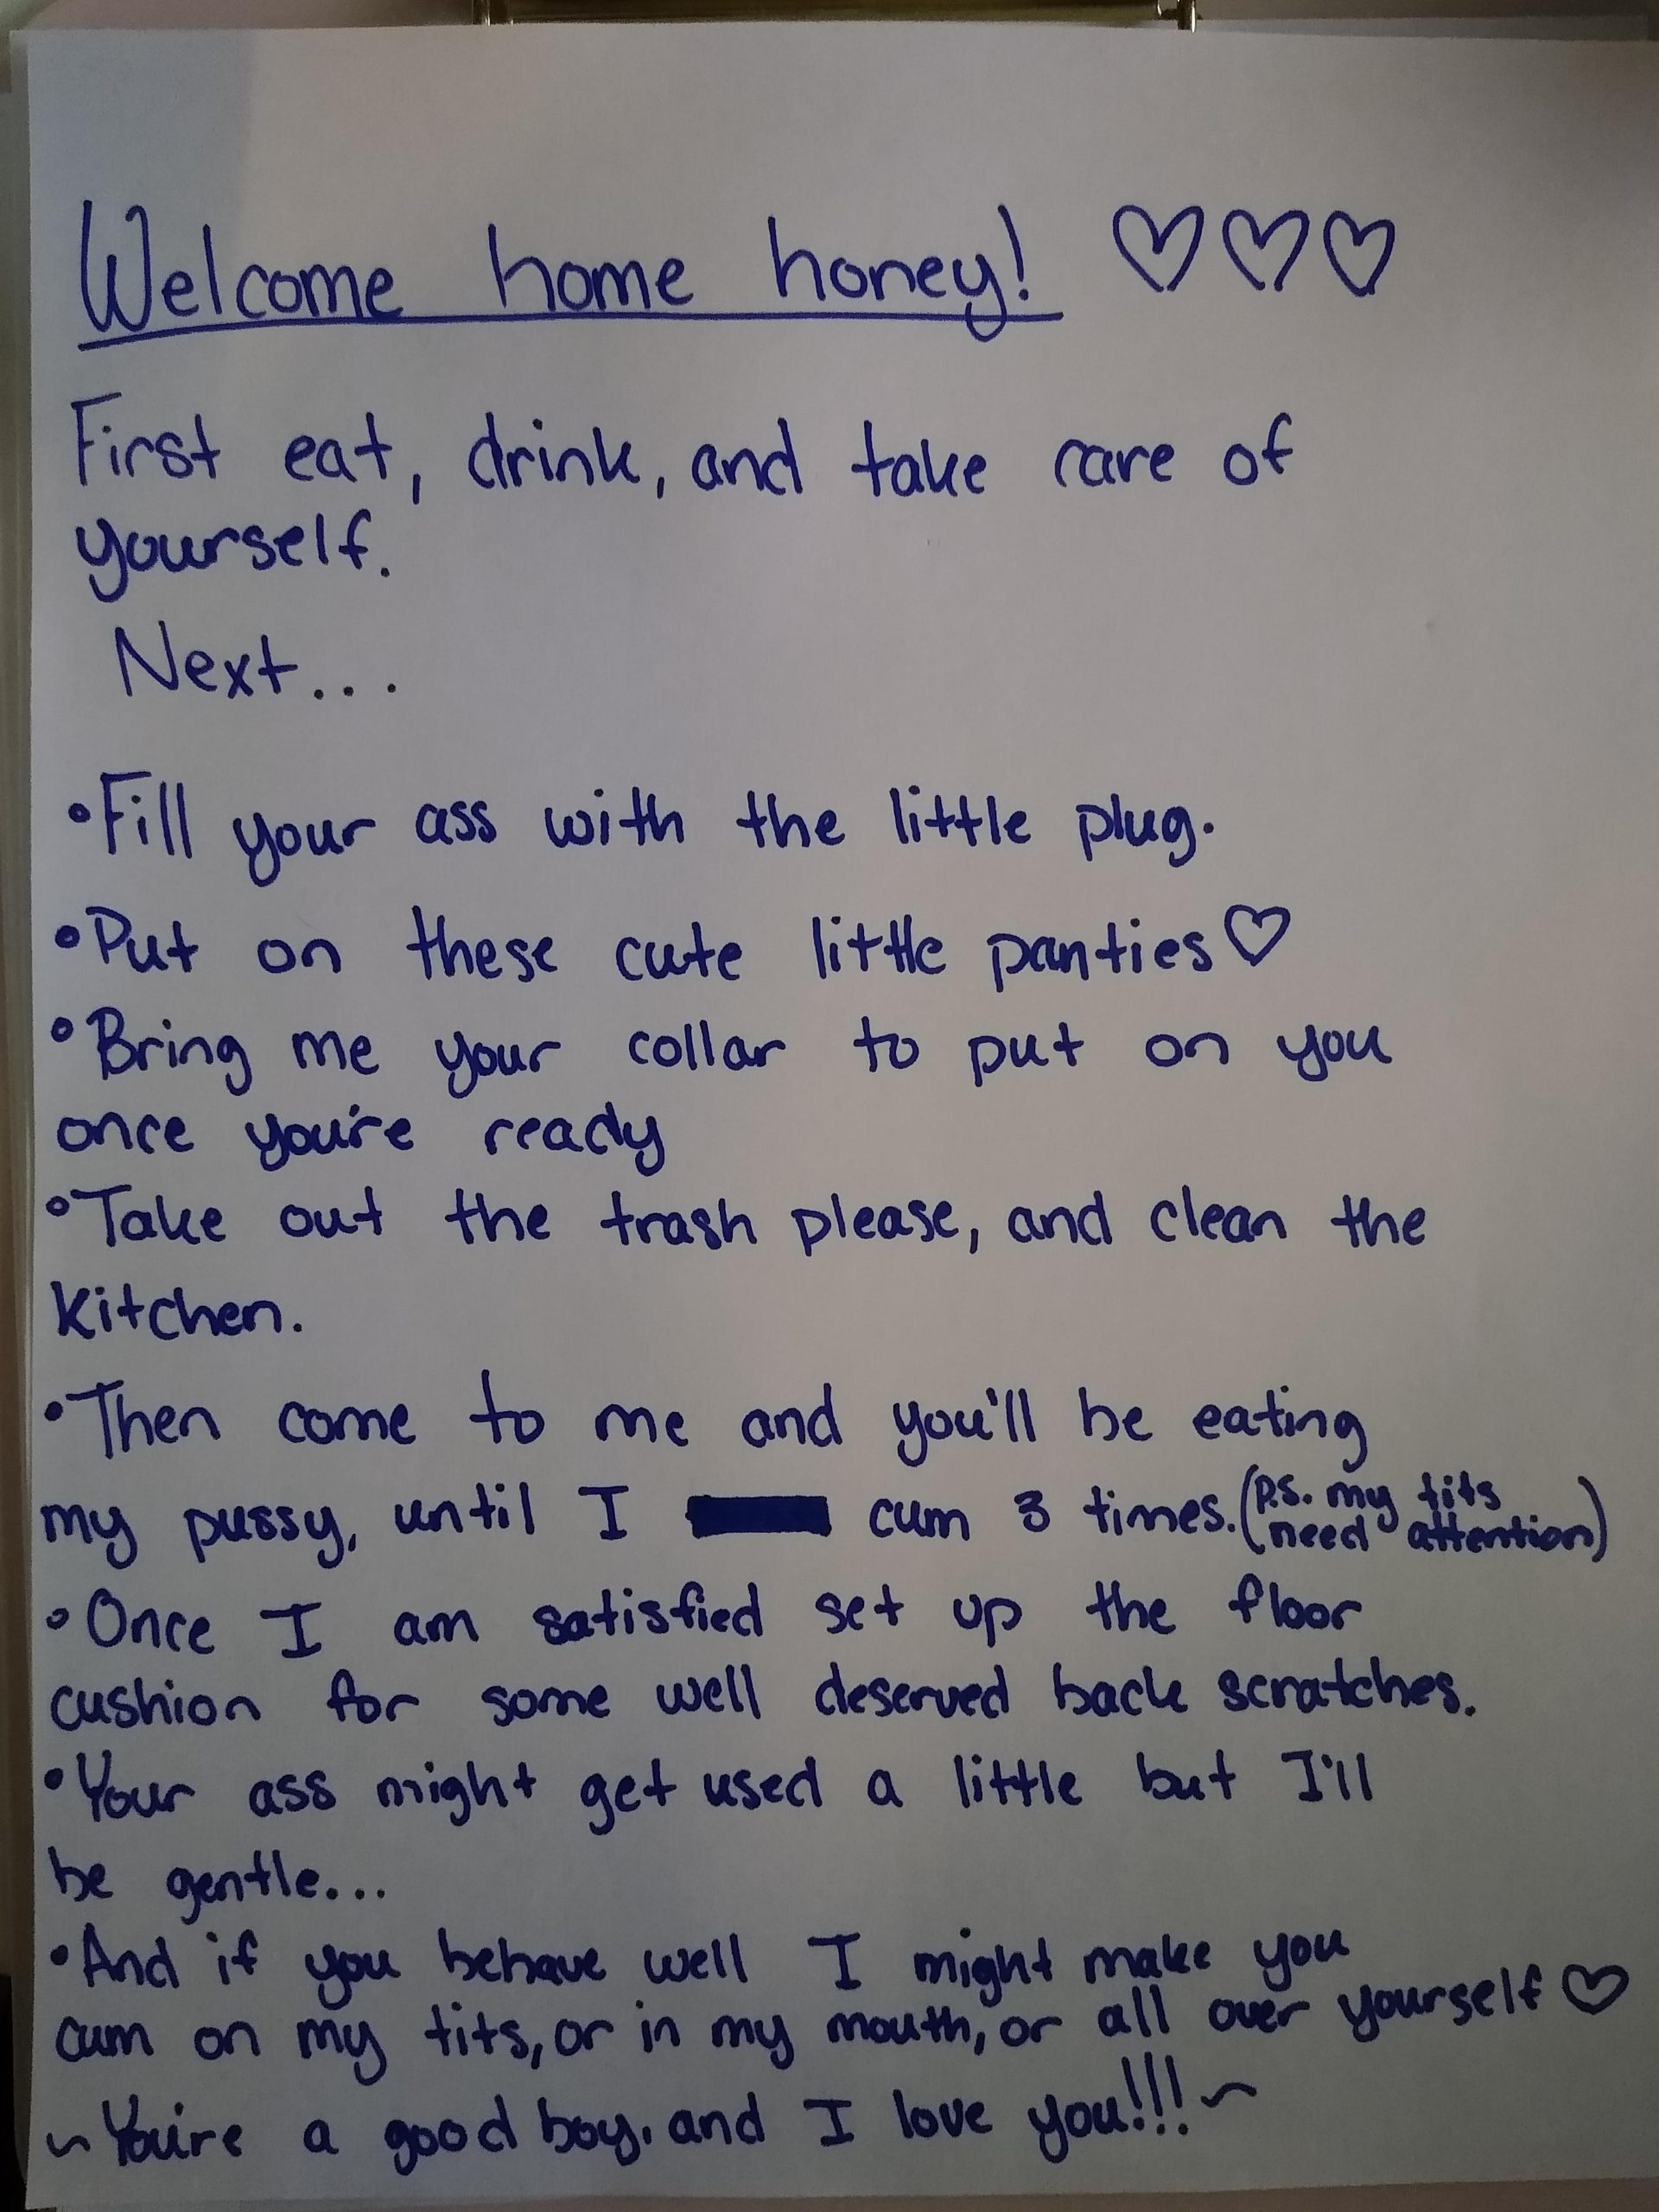 Welcome home honey! ♡♡♡
First eat, drink, and take care of
yourself.
Next...
•Fill your ass with the little plug.
•Put on these cute little panties♡
•Bring me your collar to put on you
once you're ready
•Take out the trash please, and clean the
kitchen.
•Then come to me and you'll be eating
my pussy, until I cum 3 times. (P.S. my tits
need attention)
•Once I am satisfied set up the floor
cushion for some well deserved back scratches.
•Your ass might get used a little but I'll
be gentle...
•And if you behave well I might make you
cum on my tits, or in my mouth, or all over yourself ♡
~You're a good boy, and I love you!!!~